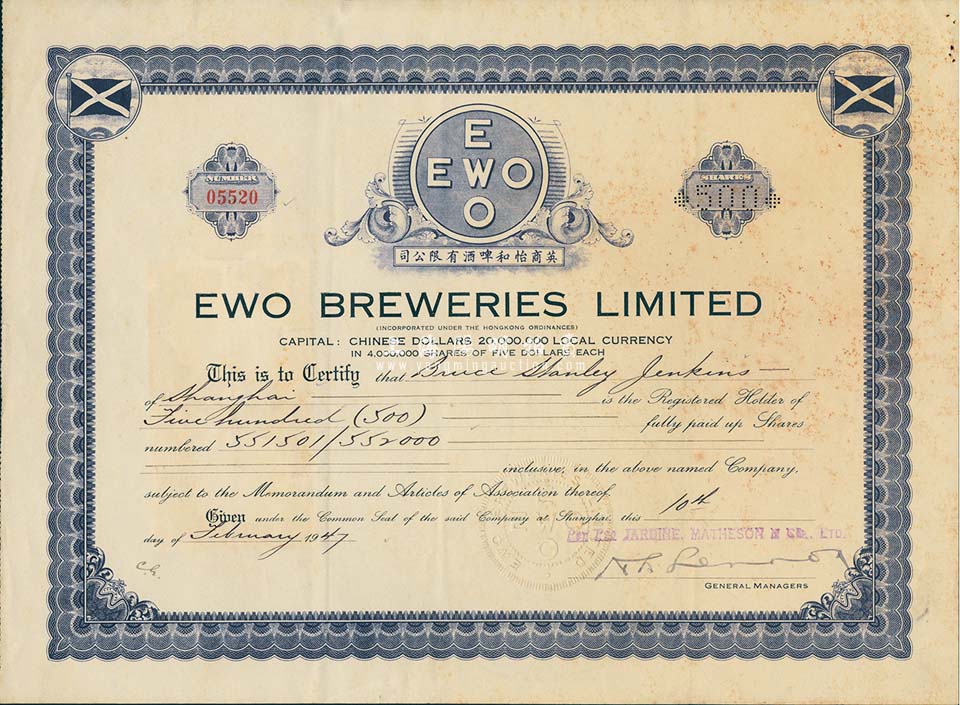 E
EWO
O
NUMBER
05520
SHARES
500
司公限有酒啤和怡商英
EWO BREWERIES LIMITED
(INCORPORATED UNDER THE HONGKONG ORDINANCES)
CAPITAL: CHINESE DOLLARS 20,000,000 LOCAL CURRENCY
IN 4,000,000 SHARES OF FIVE DOLLARS EACH
This is to Certify that Bruce Stanley Jenkins
of Shanghai is the Registered Holder of
Five hundred (500) fully paid up Shares
numbered 551501/552000
inclusive, in the above named Company,
subject to the Memorandum and Articles of Association thereof.
Given under the Common Seal of the said Company at Shanghai, this 10th
day of February 1947
JARDINE, MATHESON & CO., LTD.
GENERAL MANAGERS